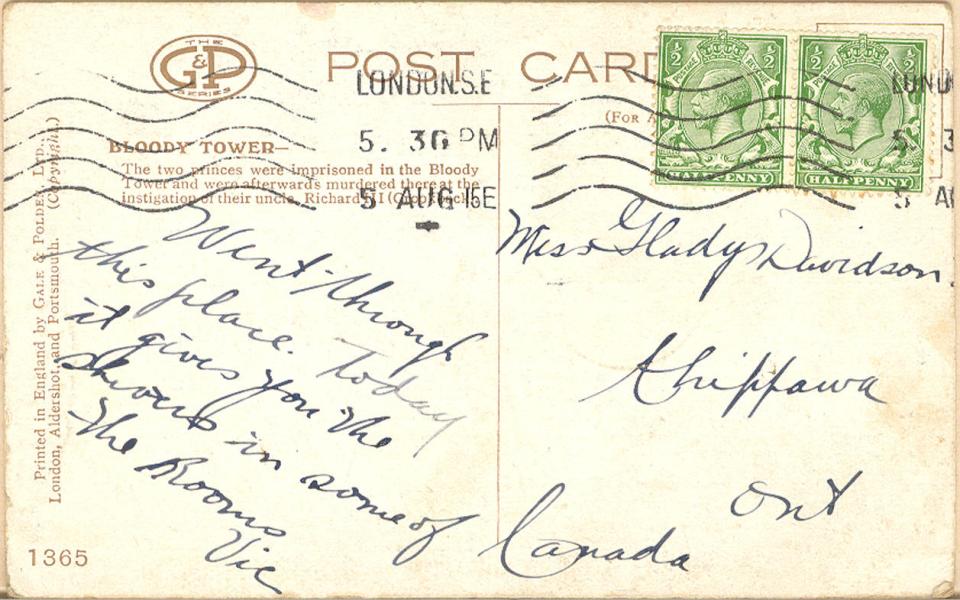 THE
G&P
SERIES
POST CARD
LONDON.S.E
5. 30 PM
5 AUG 15
BLOODY TOWER—
The two princes were imprisoned in the Bloody
Tower and were afterwards murdered there at the
instigation of their uncle, Richard III
Went through
this place. Today
it gives you the
shivers in some of
the Rooms
Vic
Printed in England by GALE & POLDEN, LTD.,
London, Aldershot, and Portsmouth. (Copyright.)
1365
(FOR A
½ ½
POSTAGE REVENUE
HALFPENNY
½ ½
POSTAGE REVENUE
HALFPENNY
LOND
5. 3
5 A
Miss Gladys Davidson.
Chippawa
Ont
Canada